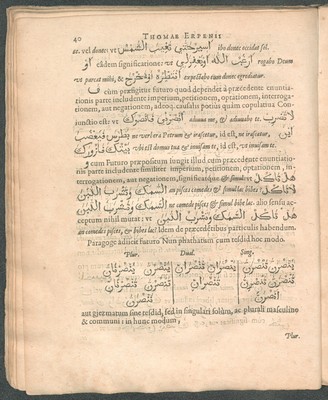 40 THOMAE ERPENII
at. vel donec: vt أسير حتي يغيب الشمس ibo donec occidat sol.
او eâdem significatione: vt الله او يغفر لي rogabo Deum
vt parcat mihi, & انتظره او يخرج expectabo eum donec egrediatur.
ف cum præfigitur futuro quod dependet à præcedente enuntiationis
parte includente imperium, petitionem, optationem, interrogationem,
aut negationem, adeoq́ causæ potius quàm copulatiua Coniunctio
est: vt انصرني فانصرك adiuua me, & adiuuabo te. لا تضرب
بطرس فيغضب ne verbera Petrum & irascetur, id est, ne irascatur, اين
بيتك فازورك vbi est domus tua & inuisam te, id est, vt inuisam te.
و cum Futuro præpositum iungit illud cum præcedente enuntiationis
parte includente similiter imperium, petitionem, optationem, interrogationem,
aut negationem, significatq́ue & simul: vt هل تاكل
السمك وتشرب اللبن an pisces comedes & simul lac bibes? لا تاكل
السمك وتشرب اللبن ne comedes pisces & simul bibe lac. alio sensu acceptum
nihil mutat: vt هل تاكل السمك وتشرب اللبن
an comedes pisces, & bibes lac? Idem de præcedẽtibus particulis habendum.
Paragoge adiicit futuro Nun phathatum cum tesdid hoc modo.
Plur. Dual. Sing.
aut giezmatum sine tesdid, sed in singulari solùm, ac plurali masculino
& communi: in hunc modum,
Plur.